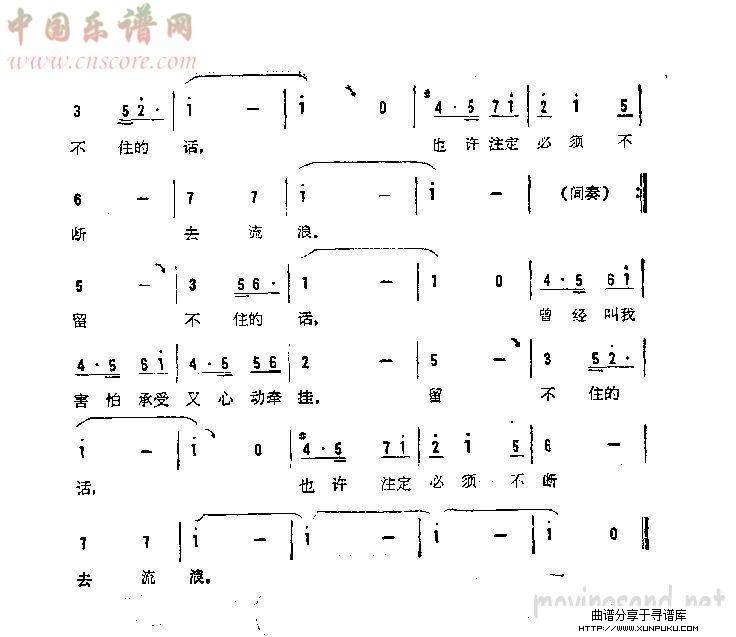 中国乐谱网
www.cnscore.com
3 5 2̇· | 1̇ — | 1̇ 0 | #4·5 7 1̇ | 2̇ 1̇ 5 |
不 住的 话, 也许注定 必 须 不
6 — | 7 7 | 1̇ — | 1̇ — | (间奏) :‖
断 去 流 浪.
5 — | 3 5 6· | 1 — | 1 0 | 4·5 6 1̇ |
留 不 住的 话, 曾 经 叫我
4·5 6 1̇ | 4·5 5 6 | 2 — | 5 — | 3 5 2̇· |
害怕 承受 又 心 动牵 挂, 留 不 住的
1̇ — | 1̇ 0 | #4·5 7 1̇ | 2̇ 1̇ 5 | 6 — |
话, 也 许 注定 必 须 不 断
7 7 | 1̇ — | 1̇ — | 1̇ — | 1̇ 0 ‖
去 流 浪.
movingsand.net
曲谱分享于寻谱库
HTTP://WWW.XUNPUKU.COM